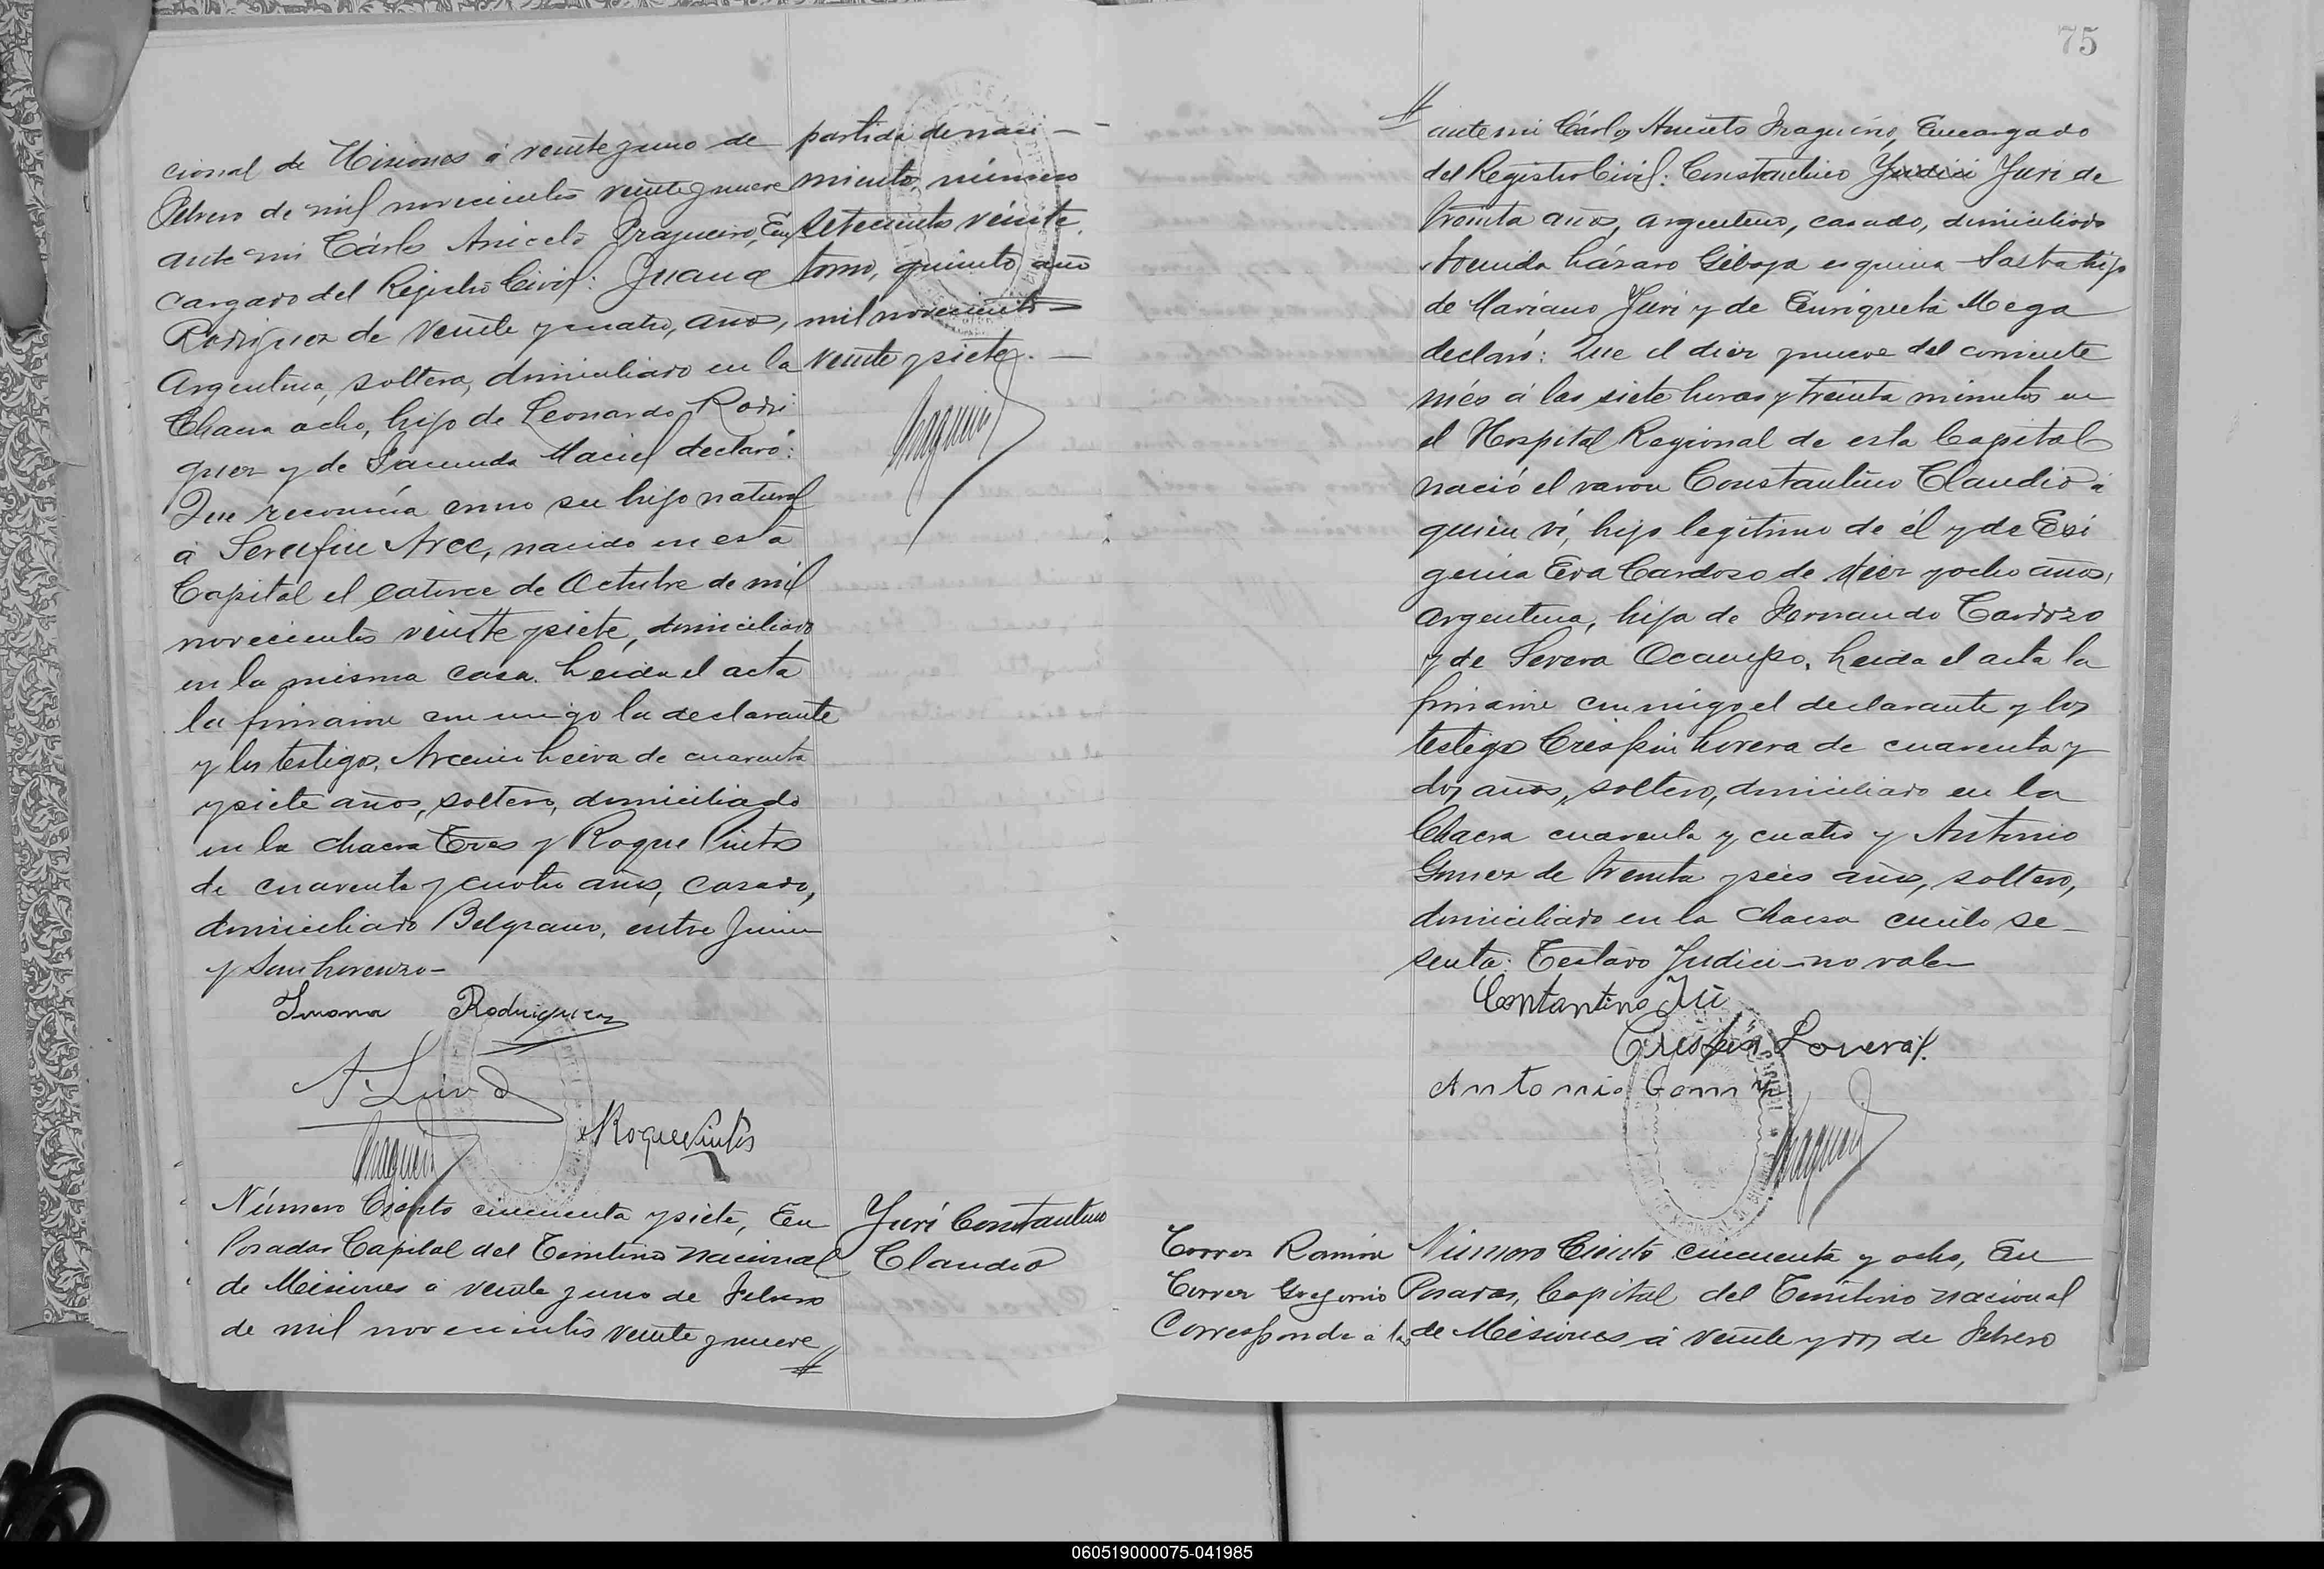 cional de Misiones á veinte y uno de
Febrero de mil novecientos veinte y nueve
ante mi Cárlos Aniceto Fragueiro, En
cargado del Registro Civil: Juana
Rodriguez de veinte y cuatro, años,
Argentina, soltera, domiciliado en la
Chacra ocho, hijo de Leonardo Rodri
guez y de Facunda Maciel declaró:
Que reconocía como su hijo natural
á Serafin Arce, nacido en esta
Capital el catorce de Octubre de mil
novecientos veintte y siete, domiciliado
en la misma casa. Leida el acta
la firmaron conmigo la declarante
y los testigos, Arcenio Leiva de cuarenta
y siete años, soltero, domiciliado
en la chacra Tres y Roque Pintos
de cuarenta y cuatro años, casado,
domiciliado Belgrano, entre Junin
y San Lorenzo-
partida de naci-
miento, número
setecientos veinte
tomo, quinto año
mil novecientos
veinte y siete.-
Juana Rodriguez
A. Leiva
Roque Pintos
Número Ciento cincuenta y siete, En
Posadas Capital del Territorio nacional
de Misiones á veinte y uno de Febrero
de mil novecientos veinte y nueve
//
Juri Constantino
Claudio
75
//
ante mi Cárlos Aniceto Fragueiro, Encargado
del Registro Civil: Constantino Judici Juri de
treinta años, argentino, casado, domiciliado
Avenida Lázaro Gibaja esquina Salta hijo
de Mariano Juri y de Enriqueta Mega
declaró: Que el diez y nueve del corriente
més á las siete horas y treinta minutos en
el Hospital Regional de esta Capital
nació el varon Constantino Claudio á
quien ví, hijo legitimo de él y de Exi
genia Eva Cardozo de diez y ocho años,
argentina, hija de Fernando Cardozo
y de Severa Ocampo. Leida el acta la
firmaron conmigo el declarante y los
testigos Crespin Lovera de cuarenta y
dos años, soltero, domiciliado en la
Chacra cuarenta y cuatro y Antonio
Gomez de treinta y seis años, soltero,
domiciliado en la chacra ciento se-
senta. Testado Judici-no vale-
Contantino Juri
Crespin Lovera
Antonio Gomez
Torres Ramón
Torres Gregorio
Corresponde á la
Número Ciento cincuenta y ocho, En
Posadas, Capital del Territorio nacional
de Misiones á veinte y dos de Febrero
060519000075-041985